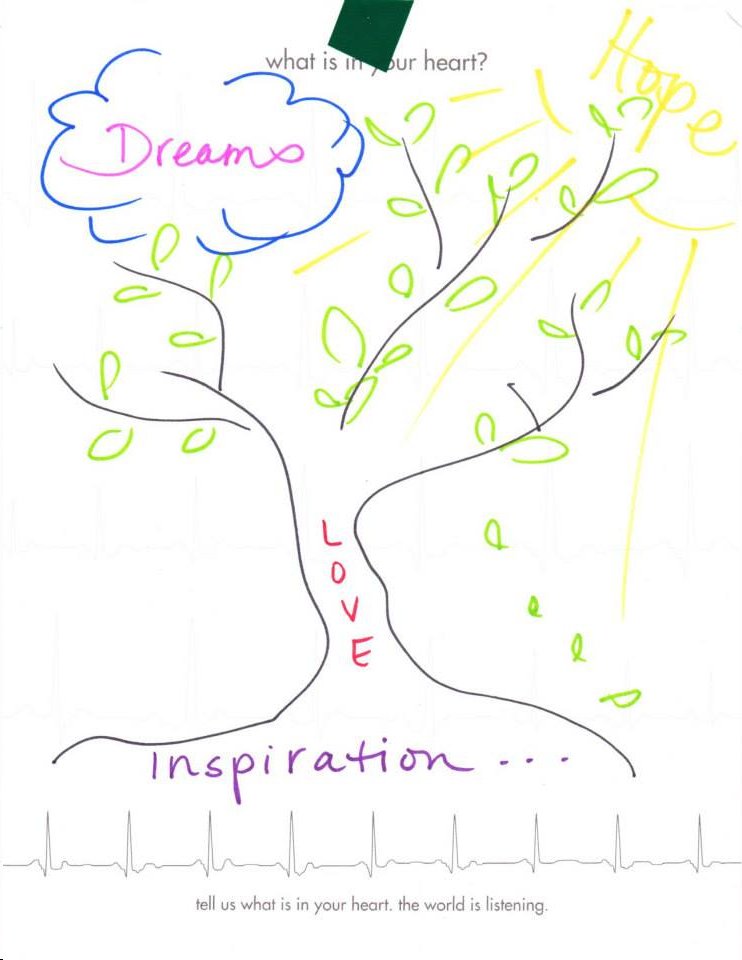 what is in your heart?
Hope
Dreams
L
O
V
E
Inspiration...
tell us what is in your heart. the world is listening.